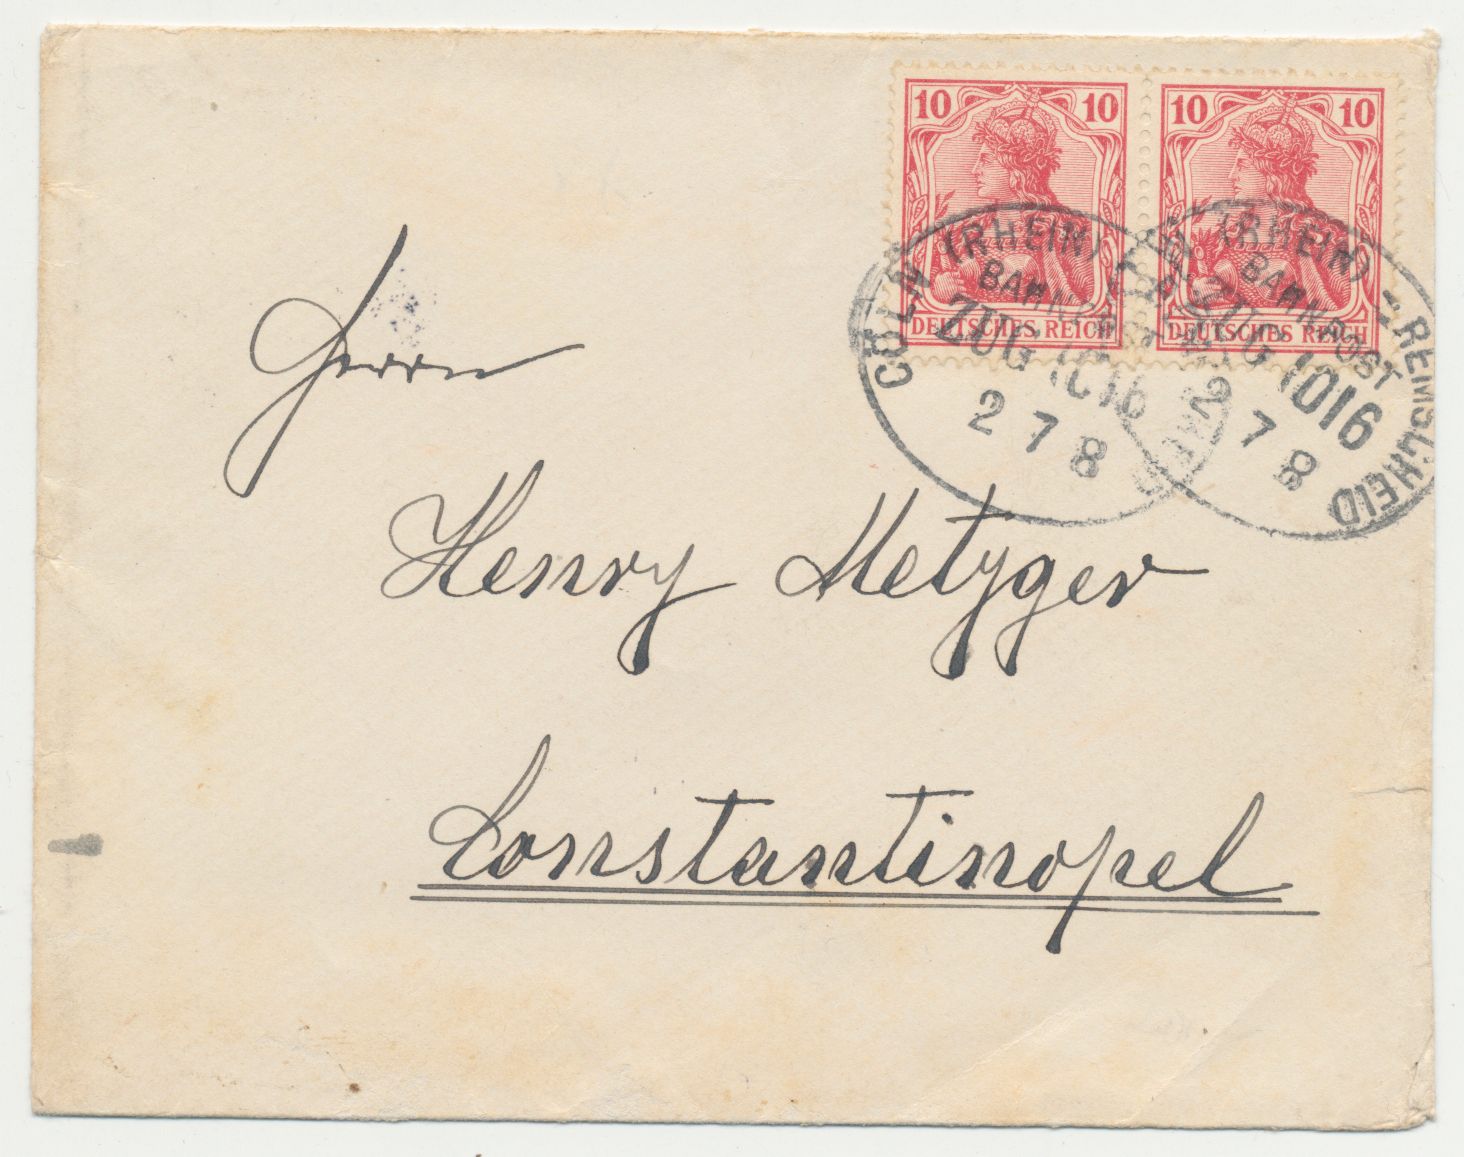 10 10 10 10
DEUTSCHES REICH DEUTSCHES REICH
CÖLN (RHEIN) - REMSCHEID
BAHNPOST
ZUG 1016
2 7 8
CÖLN (RHEIN) - REMSCHEID
BAHNPOST
ZUG 1016
2 7 8
Herrn
Henry Metzger
Constantinopel